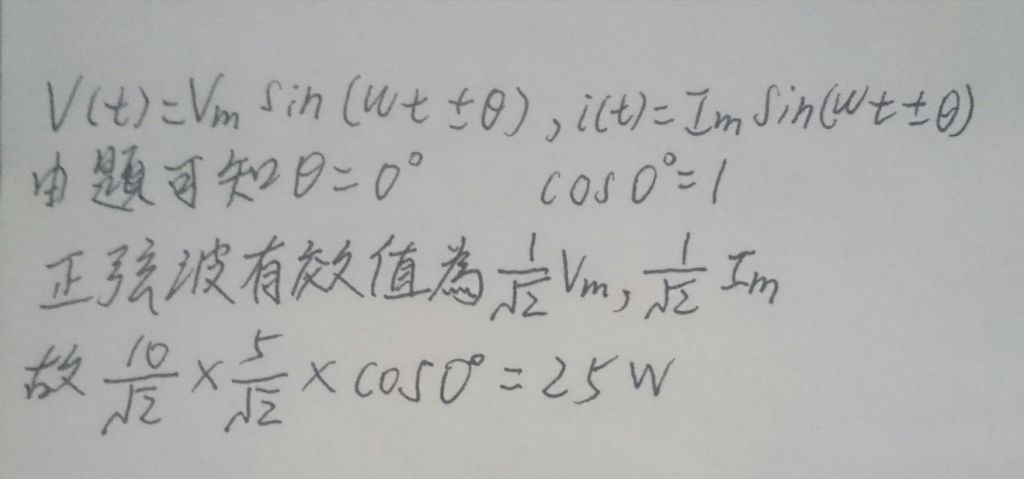 V(t)=Vm Sin(wt±θ), i(t)=Im Sin(wt±θ)
由題可知θ=0° cos0°=1
正弦波有效值為 1/√2 Vm, 1/√2 Im
故 10/√2 × 5/√2 × cos0° = 25W